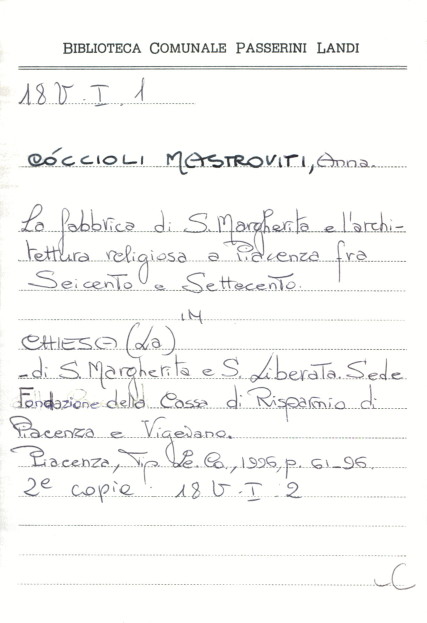 BIBLIOTECA COMUNALE PASSERINI LANDI
18 V. I. 1
CÓCCIOLI MASTROVITI, Anna.
La fabbrica di S. Margherita e l'archi-
tettura religiosa a Piacenza fra
Seicento e Settecento.
IN
CHIESA (La)
di S. Margherita e S. Liberata. Sede
Fondazione della Cassa di Risparmio di
Piacenza e Vigevano.
Piacenza, Tip. Le. Co., 1996, p. 61-96.
2e copie 18 V. I. 2
C